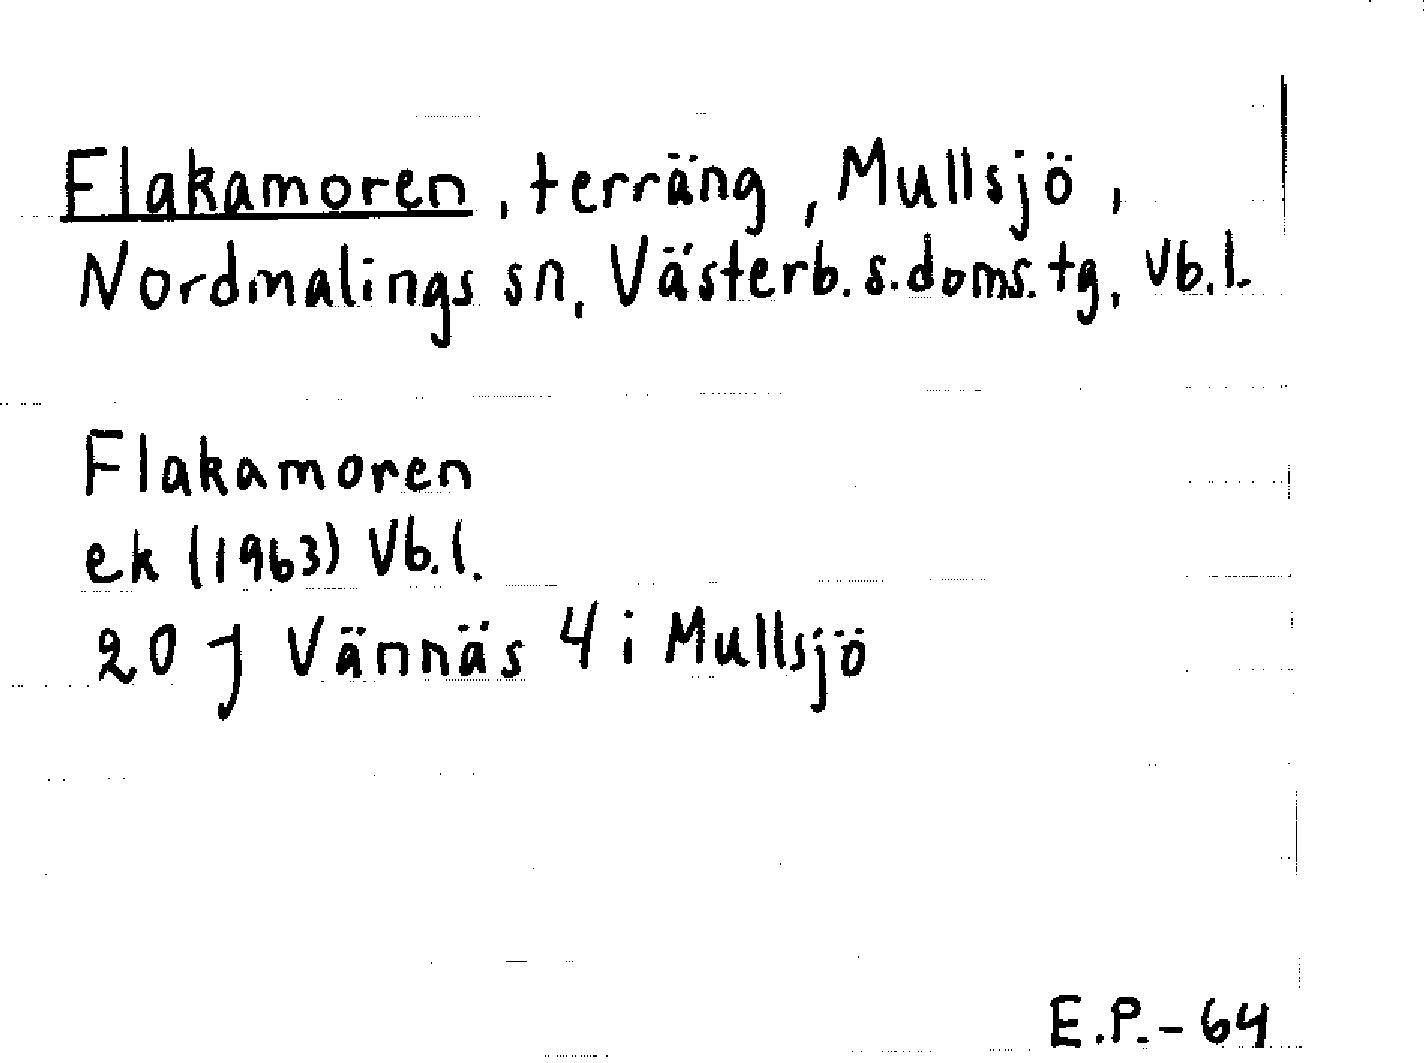 Flakamoren, terräng, Mullsjö,
Nordmalings sn, Västerb. s. doms. tg, Vb.l.
Flakamoren
ek (1963) Vb.l.
20 J Vännäs 4 i Mullsjö
E.P.-64